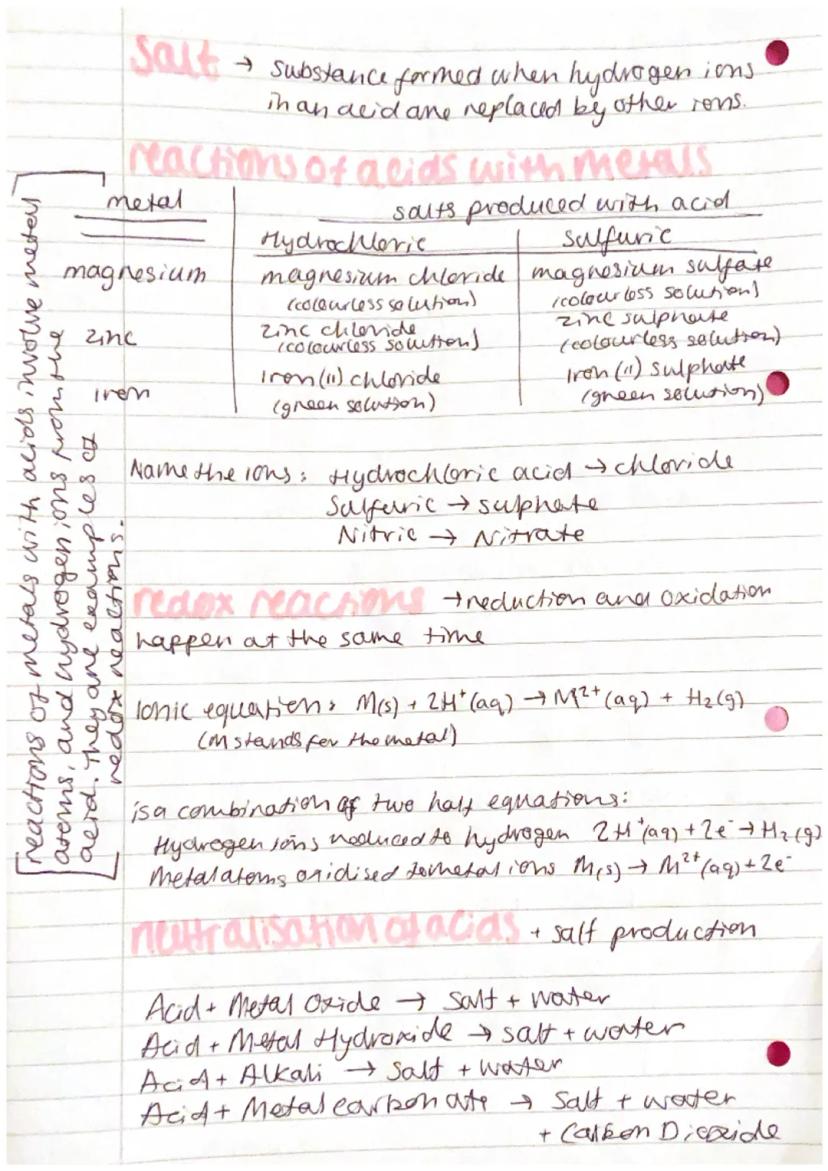 Salt → substance formed when hydrogen ions
in an acid are replaced by other ions.
reactions of acids with metals
metal
salts produced with acid
Hydrochloric
Sulfuric
magnesium
magnesium chloride
(colourless solution)
magnesium sulfate
(colourless solution)
zinc
zinc chloride
(colourless solution)
zinc sulphate
(colourless solution)
iron
iron (II) chloride
(green solution)
iron (II) sulphate
(green solution)
reactions of metals with acids involve metal
atoms, and hydrogen ions from the
acid. They are examples of
redox reactions.
Name the ions: Hydrochloric acid → chloride
Sulfuric → sulphate
Nitric → Nitrate
redox reactions → reduction and oxidation
happen at the same time
Ionic equation: M(s) + 2H⁺(aq) → M²⁺(aq) + H₂(g)
(M stands for the metal)
is a combination of two half equations:
Hydrogen ions reduced to hydrogen 2H⁺(aq) + 2e⁻ → H₂(g)
Metal atoms oxidised to metal ions M(s) → M²⁺(aq) + 2e⁻
neutralisation of acids + salt production
Acid + Metal Oxide → Salt + Water
Acid + Metal Hydroxide → salt + water
Acid + Alkali → Salt + Water
Acid + Metal carbonate → Salt + water
+ Carbon Dioxide